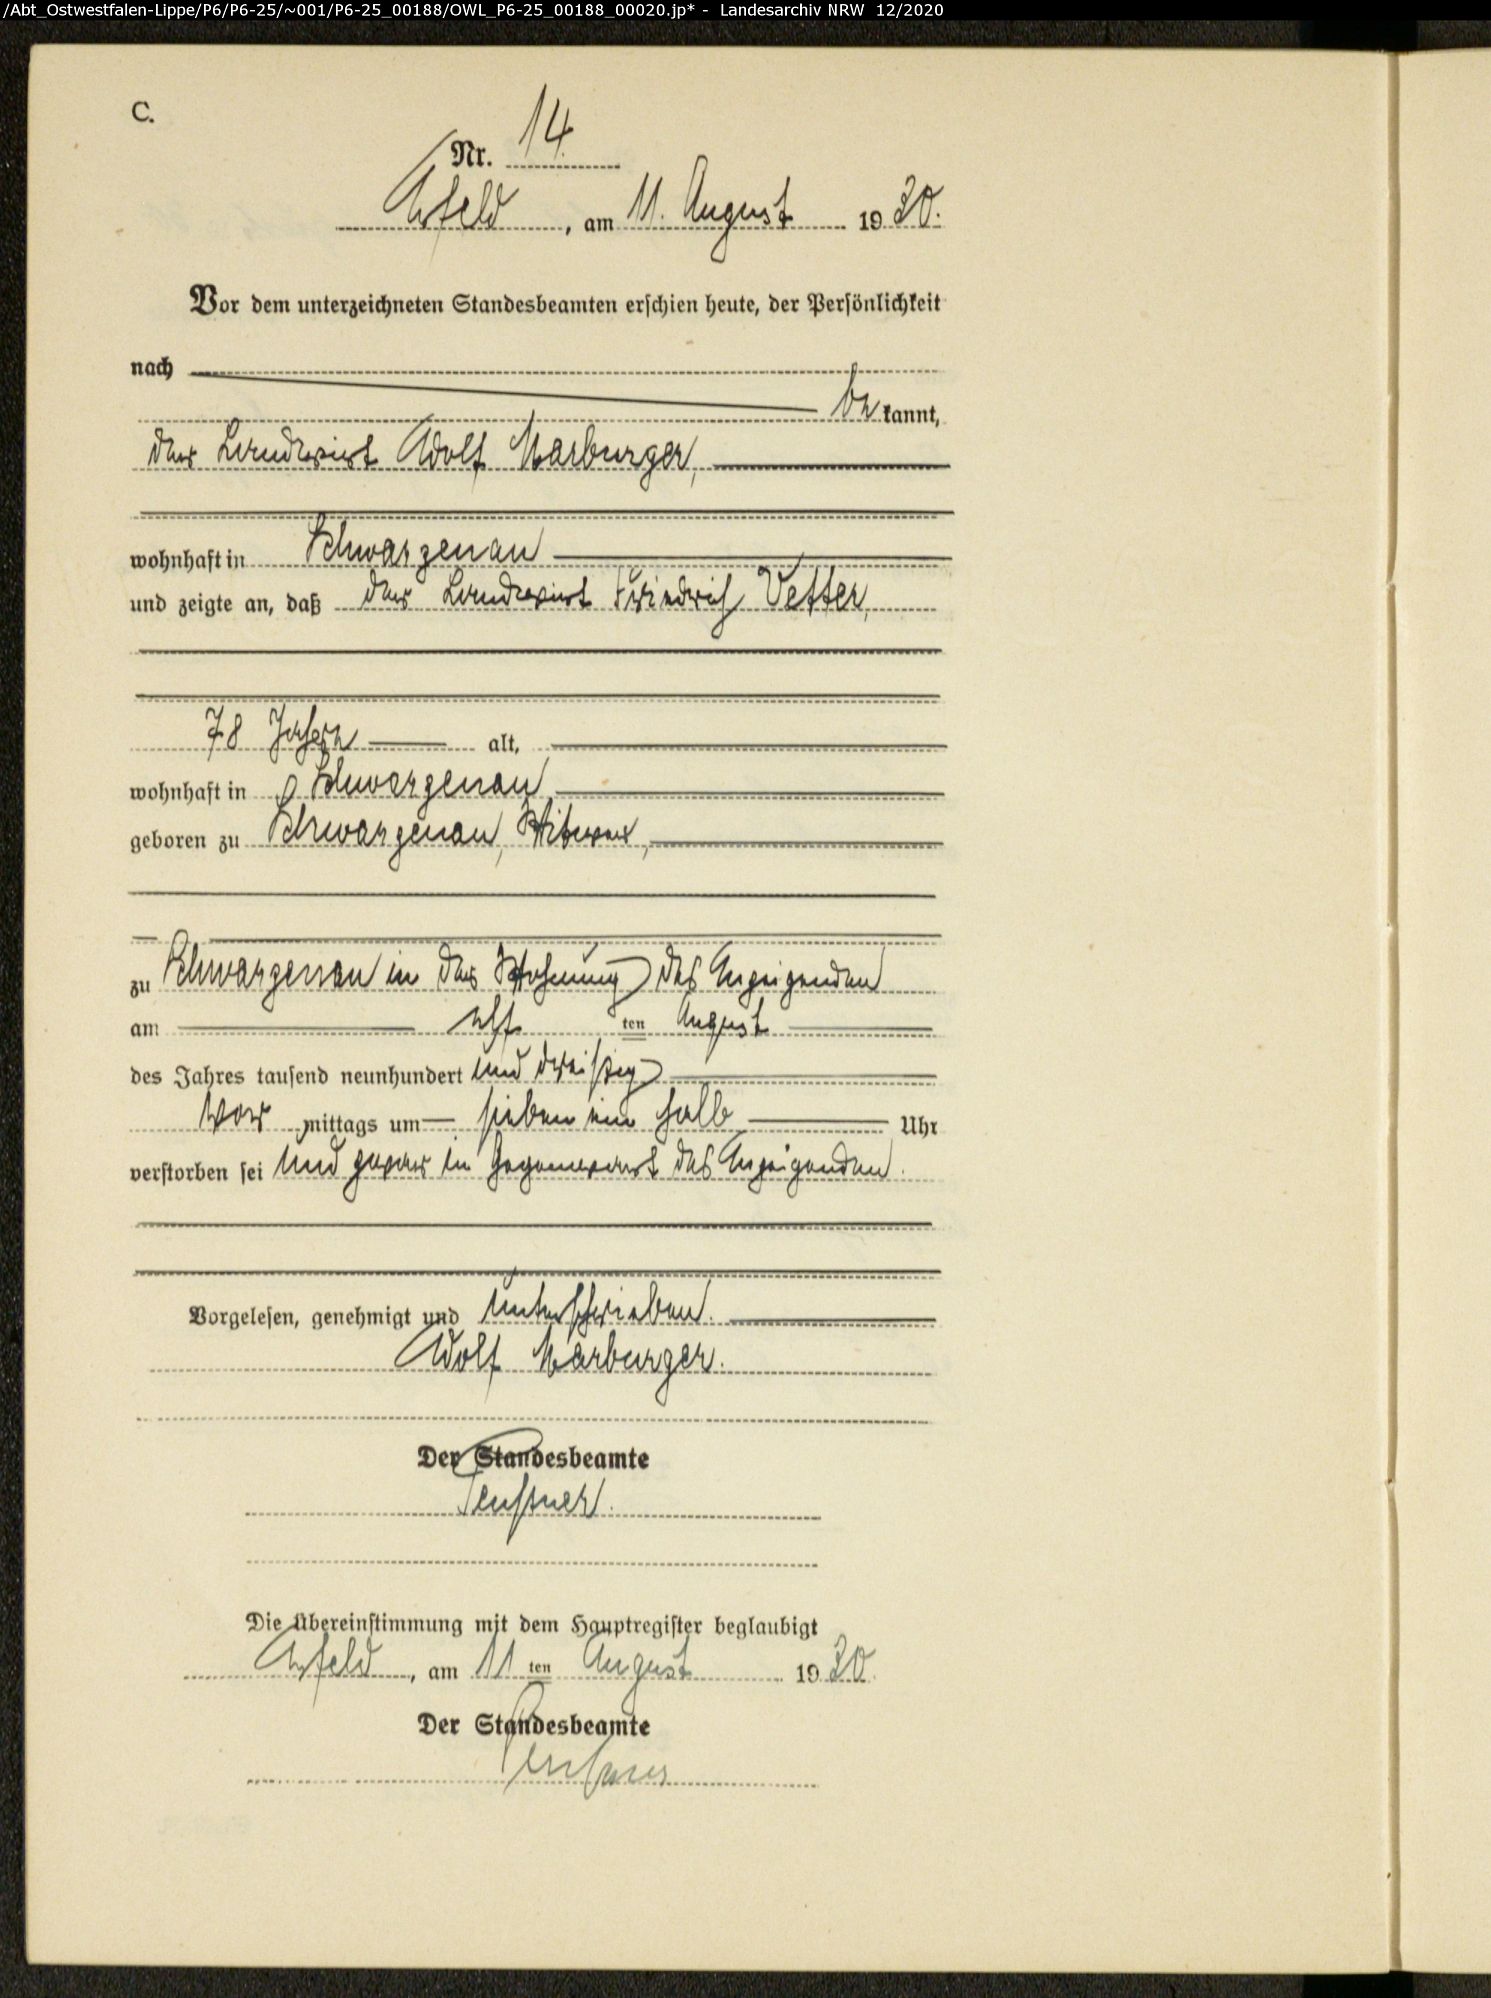 /Abt_Ostwestfalen-Lippe/P6/P6-25/~001/P6-25_00188/OWL_P6-25_00188_00020.jp* - Landesarchiv NRW 12/2020
C.
Nr. 14
Arfeld, am 11. August 1930.
Vor dem unterzeichneten Standesbeamten erschien heute, der Persönlichkeit
nach
be kannt,
der Landwirt Adolf Marburger,
wohnhaft in Schwarzenau
und zeigte an, daß der Landwirt Friedrich Vetter,
78 Jahre alt,
wohnhaft in Schwarzenau
geboren zu Schwarzenau, Witwer,
zu Schwarzenau in der Wohnung des Anzeigenden
am elf ten August
des Jahres tausend neunhundert und dreißig
Vor mittags um sieben ein halb Uhr
verstorben sei und zwar in Gegenwart des Anzeigenden.
Vorgelesen, genehmigt und unterschrieben.
Adolf Marburger.
Der Standesbeamte
Die Übereinstimmung mit dem Hauptregister beglaubigt
Arfeld, am 11 ten August 1930.
Der Standesbeamte